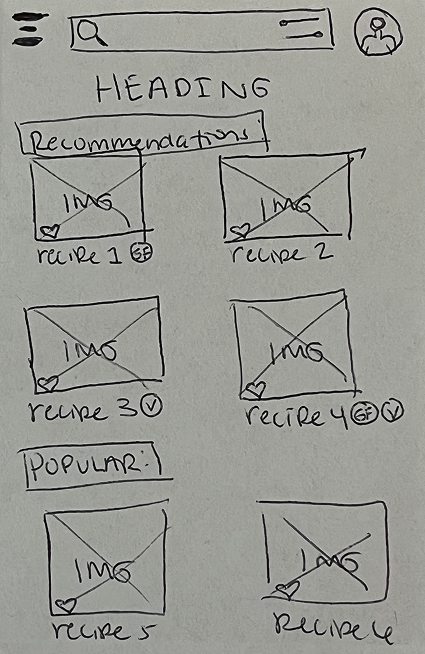 HEADING
Recommendations
IMG IMG
recipe 1 GF recipe 2
IMG IMG
recipe 3 V recipe 4 GF V
POPULAR:
IMG IMG
recipe 5 Recipe 6